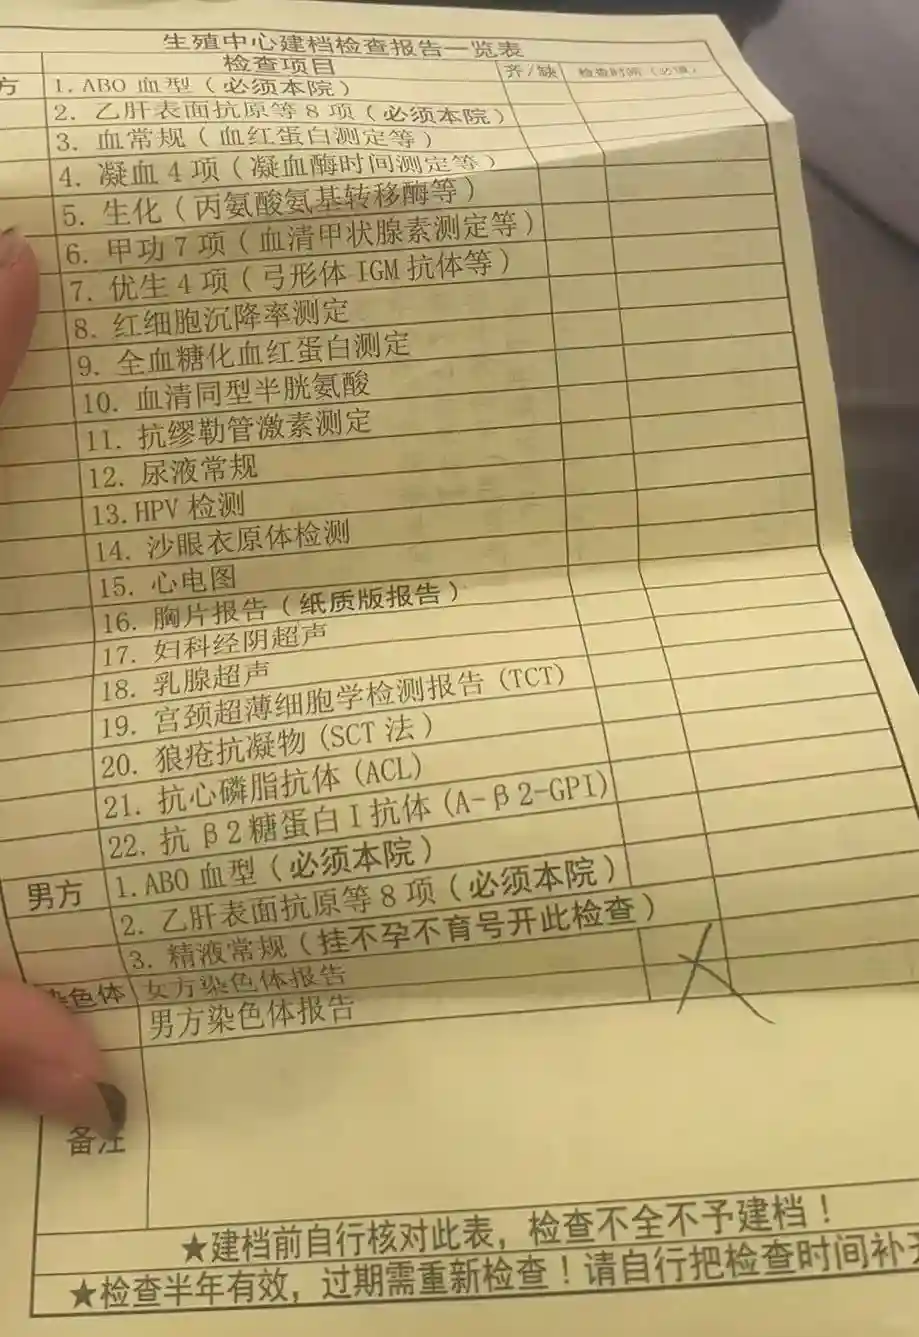 生殖中心建档检查报告一览表
检查项目 齐/缺 检查时间(必填)
方 1.ABO 血型(必须本院)
2. 乙肝表面抗原等8项(必须本院)
3. 血常规(血红蛋白测定等)
4. 凝血4项(凝血酶时间测定等)
5. 生化(丙氨酸氨基转移酶等)
6. 甲功7项(血清甲状腺素测定等)
7. 优生4项(弓形体IGM抗体等)
8. 红细胞沉降率测定
9. 全血糖化血红蛋白测定
10. 血清同型半胱氨酸
11. 抗缪勒管激素测定
12. 尿液常规
13.HPV检测
14. 沙眼衣原体检测
15. 心电图
16. 胸片报告(纸质版报告)
17. 妇科经阴超声
18. 乳腺超声
19. 宫颈超薄细胞学检测报告(TCT)
20. 狼疮抗凝物(SCT法)
21. 抗心磷脂抗体(ACL)
22. 抗β2糖蛋白I抗体(A-β2-GPI)
男方 1.ABO血型(必须本院)
2. 乙肝表面抗原等8项(必须本院)
3. 精液常规(挂不孕不育号开此检查)
色体 女方染色体报告
男方染色体报告
备注
★建档前自行核对此表，检查不全不予建档！
★检查半年有效，过期需重新检查！请自行把检查时间补